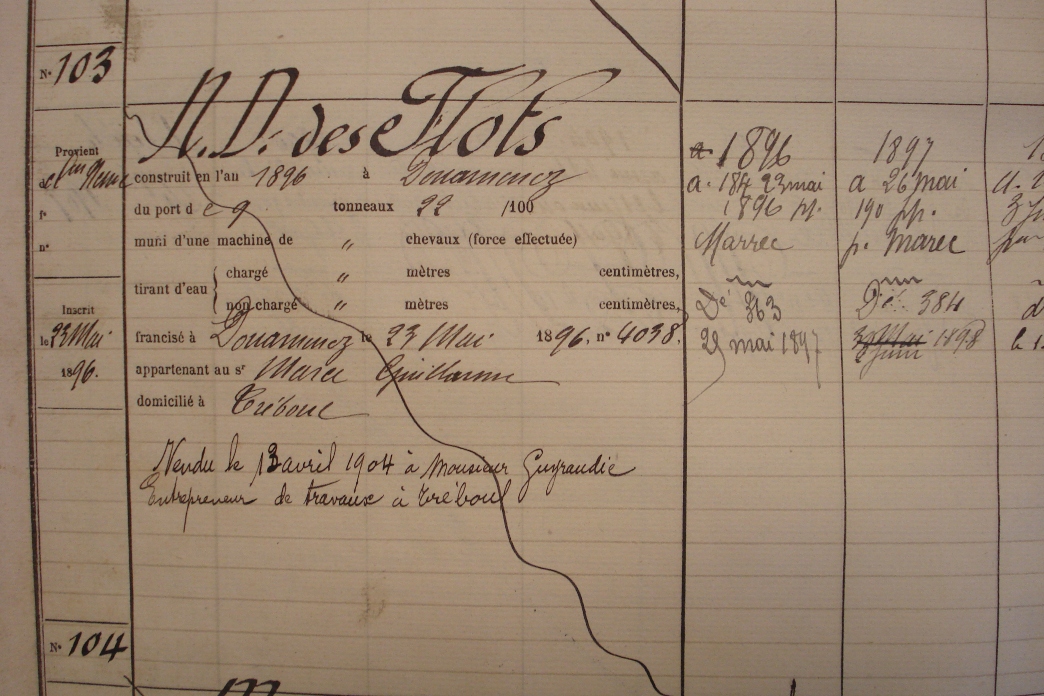 N° 103
N. D. des Flots
Provient
construit en l'an 1896 à Douarnenez
f°
du port de 9 tonneaux 22 /100
n°
muni d'une machine de " chevaux (force effectuée)
tirant d'eau
chargé " mètres centimètres,
non chargé " mètres centimètres,
Inscrit
le 23 Mai
1896.
francisé à Douarnenez le 23 Mai 1896. n° 4038.
appartenant au sr Marec Guillaume
domicilié à Tréboul
Vendu le 13 avril 1904 à Monsieur Guyraudie
Entrepreneur de travaux à Tréboul
1896
a. 184 23 mai
1896 pp.
Marrec
Dé 363
29 mai 1897
1897
a 26 mai
190 pp.
p. Marec
Dé 384
1898
N° 104